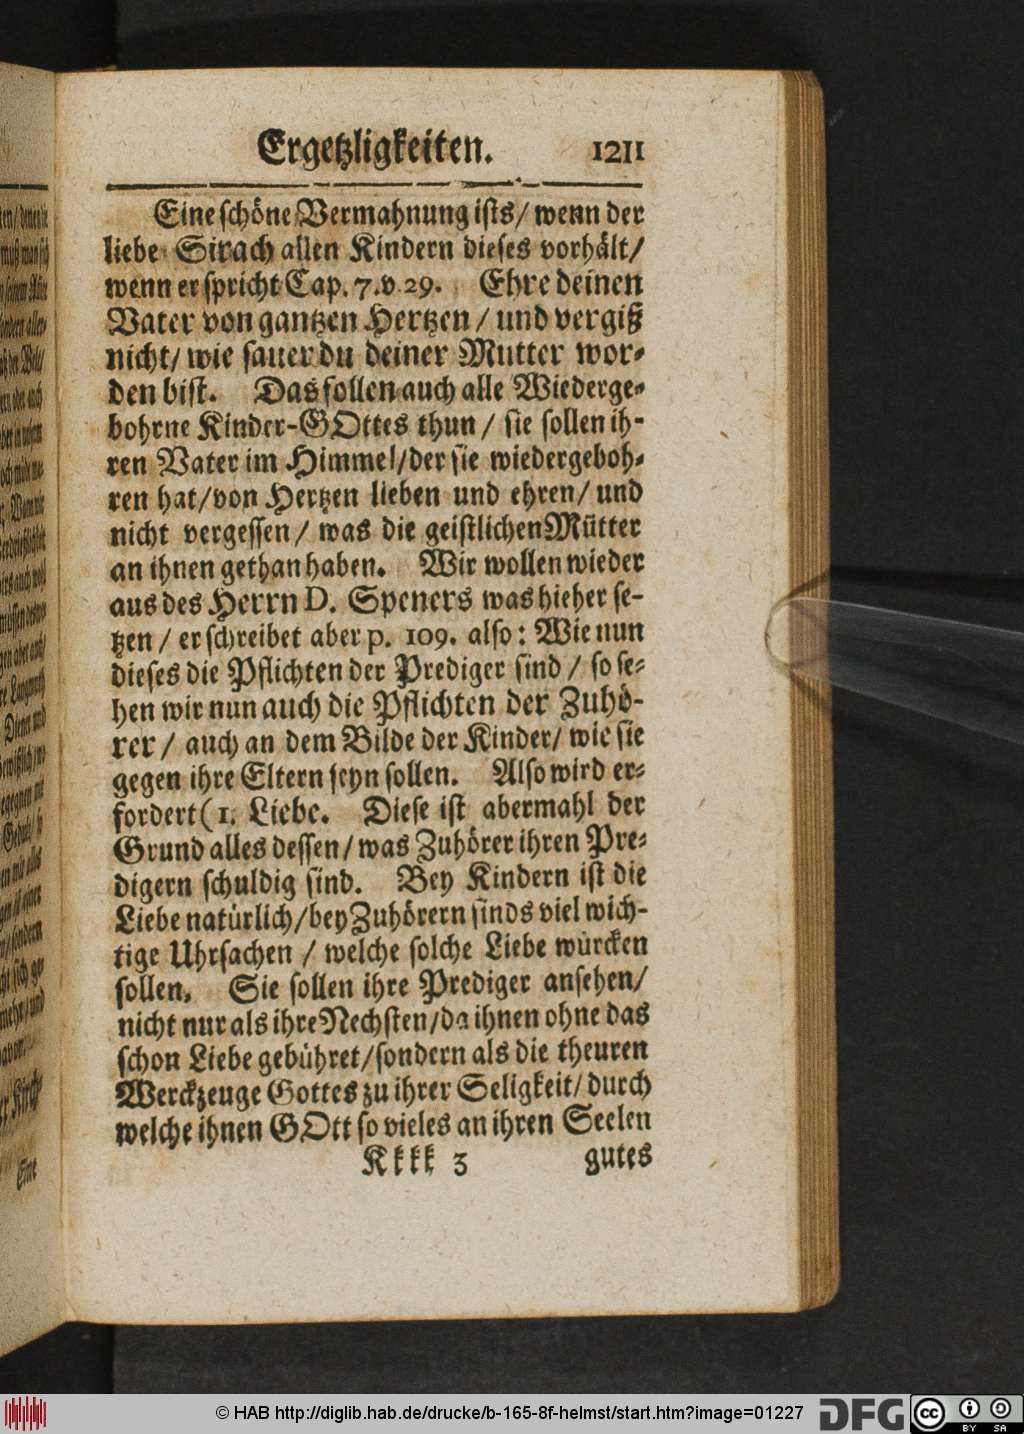 Ergetzligkeiten. 1211
Eine schöne Vermahnung ists/ wenn der
liebe Sirach allen Kindern dieses vorhält/
wenn er spricht Cap. 7. v 29. Ehre deinen
Vater von gantzen Hertzen / und vergiß
nicht/ wie sauer du deiner Mutter wor-
den bist. Das sollen auch alle Wiederge-
bohrne Kinder-GOttes thun / sie sollen ih-
ren Vater im Himmel/der sie wiedergeboh-
ren hat/von Hertzen lieben und ehren/ und
nicht vergessen / was die geistlichen Mütter
an ihnen gethan haben. Wir wollen wieder
aus des Herrn D. Speners was hieher se-
tzen / er schreibet aber p. 109. also: Wie nun
dieses die Pflichten der Prediger sind / so se-
hen wir nun auch die Pflichten der Zuhö-
rer / auch an dem Bilde der Kinder/ wie sie
gegen ihre Eltern seyn sollen. Also wird er-
fordert (1. Liebe. Diese ist abermahl der
Grund alles dessen/ was Zuhörer ihren Pre-
digern schuldig sind. Bey Kindern ist die
Liebe natürlich/bey Zuhörern sinds viel wich-
tige Uhrsachen / welche solche Liebe würcken
sollen. Sie sollen ihre Prediger ansehen/
nicht nur als ihre Nechsten/da ihnen ohne das
schon Liebe gebühret/sondern als die theuren
Werckzeuge Gottes zu ihrer Seligkeit/ durch
welche ihnen GOtt so vieles an ihren Seelen
Kkkk 3 gutes
Eine
© HAB http://diglib.hab.de/drucke/b-165-8f-helmst/start.htm?image=01227
DFG
cc BY SA